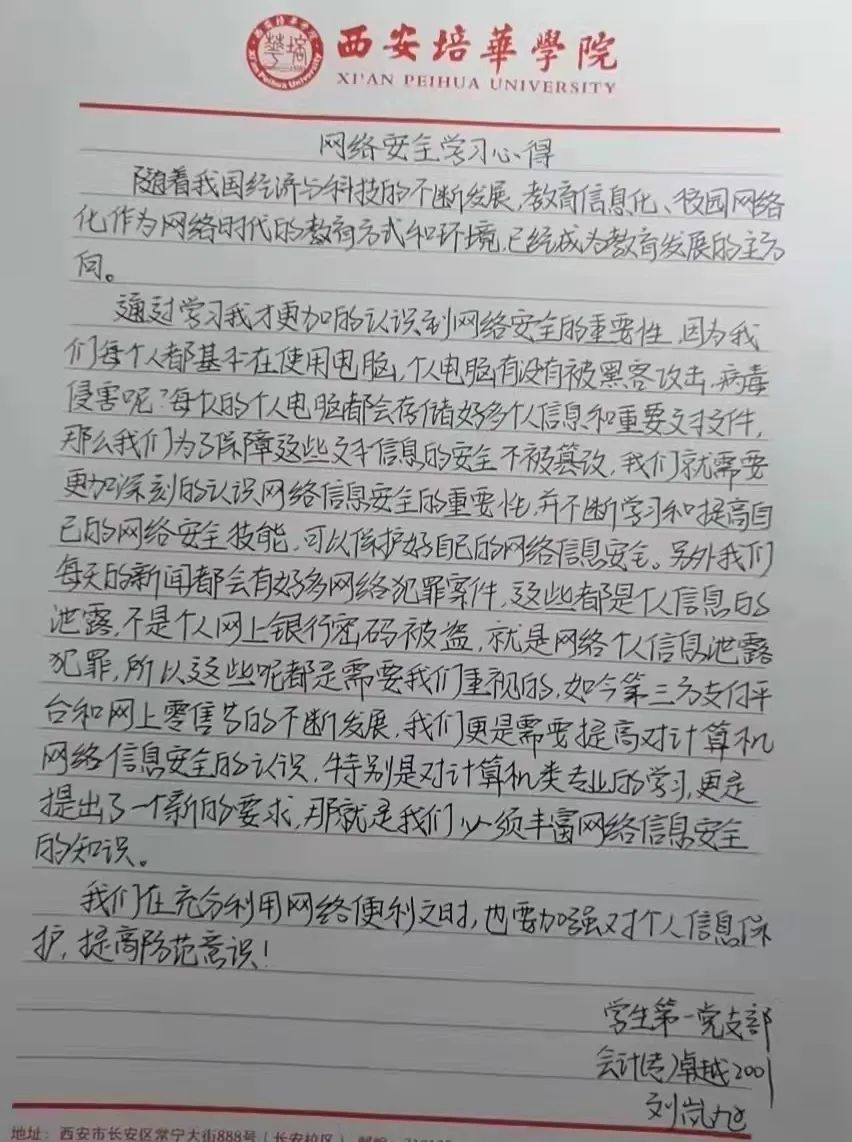 西安培華學院
XI'AN PEIHUA UNIVERSITY
网络安全学习心得
随着我国经济与科技的不断发展,教育信息化、校园网络
化作为网络时代的教育方式和环境,已经成为教育发展的主方
向。
通过学习我才更加的认识到网络安全的重要性,因为我
们每个人都基本在使用电脑,个人电脑有没有被黑客攻击,病毒
侵害呢?每个人的个人电脑都会存储好多个人信息和重要文本文件,
那么我们为了保障这些文本信息的安全不被篡改,我们就需要
更加深刻的认识网络信息安全的重要性,并不断学习和提高自
己的网络安全技能,可以保护好自己的网络信息安全。另外我们
每天的新闻都会有好多网络犯罪案件,这些都是个人信息的
泄露,不是个人网上银行密码被盗,就是网络个人信息泄露
犯罪,所以这些呢都是需要我们重视的,如今第三方支付平
台和网上零售等的不断发展,我们更是需要提高对计算机
网络信息安全的认识,特别是对计算机类专业的学习,更是
提出了一个新的要求,那就是我们必须丰富网络信息安全
的知识。
我们在充分利用网络便利之时,也要加强对个人信息保
护,提高防范意识!
学生第一党支部
会计(专)卓越2001
刘岚
地址:西安市长安区常宁大街888号(长安校区)